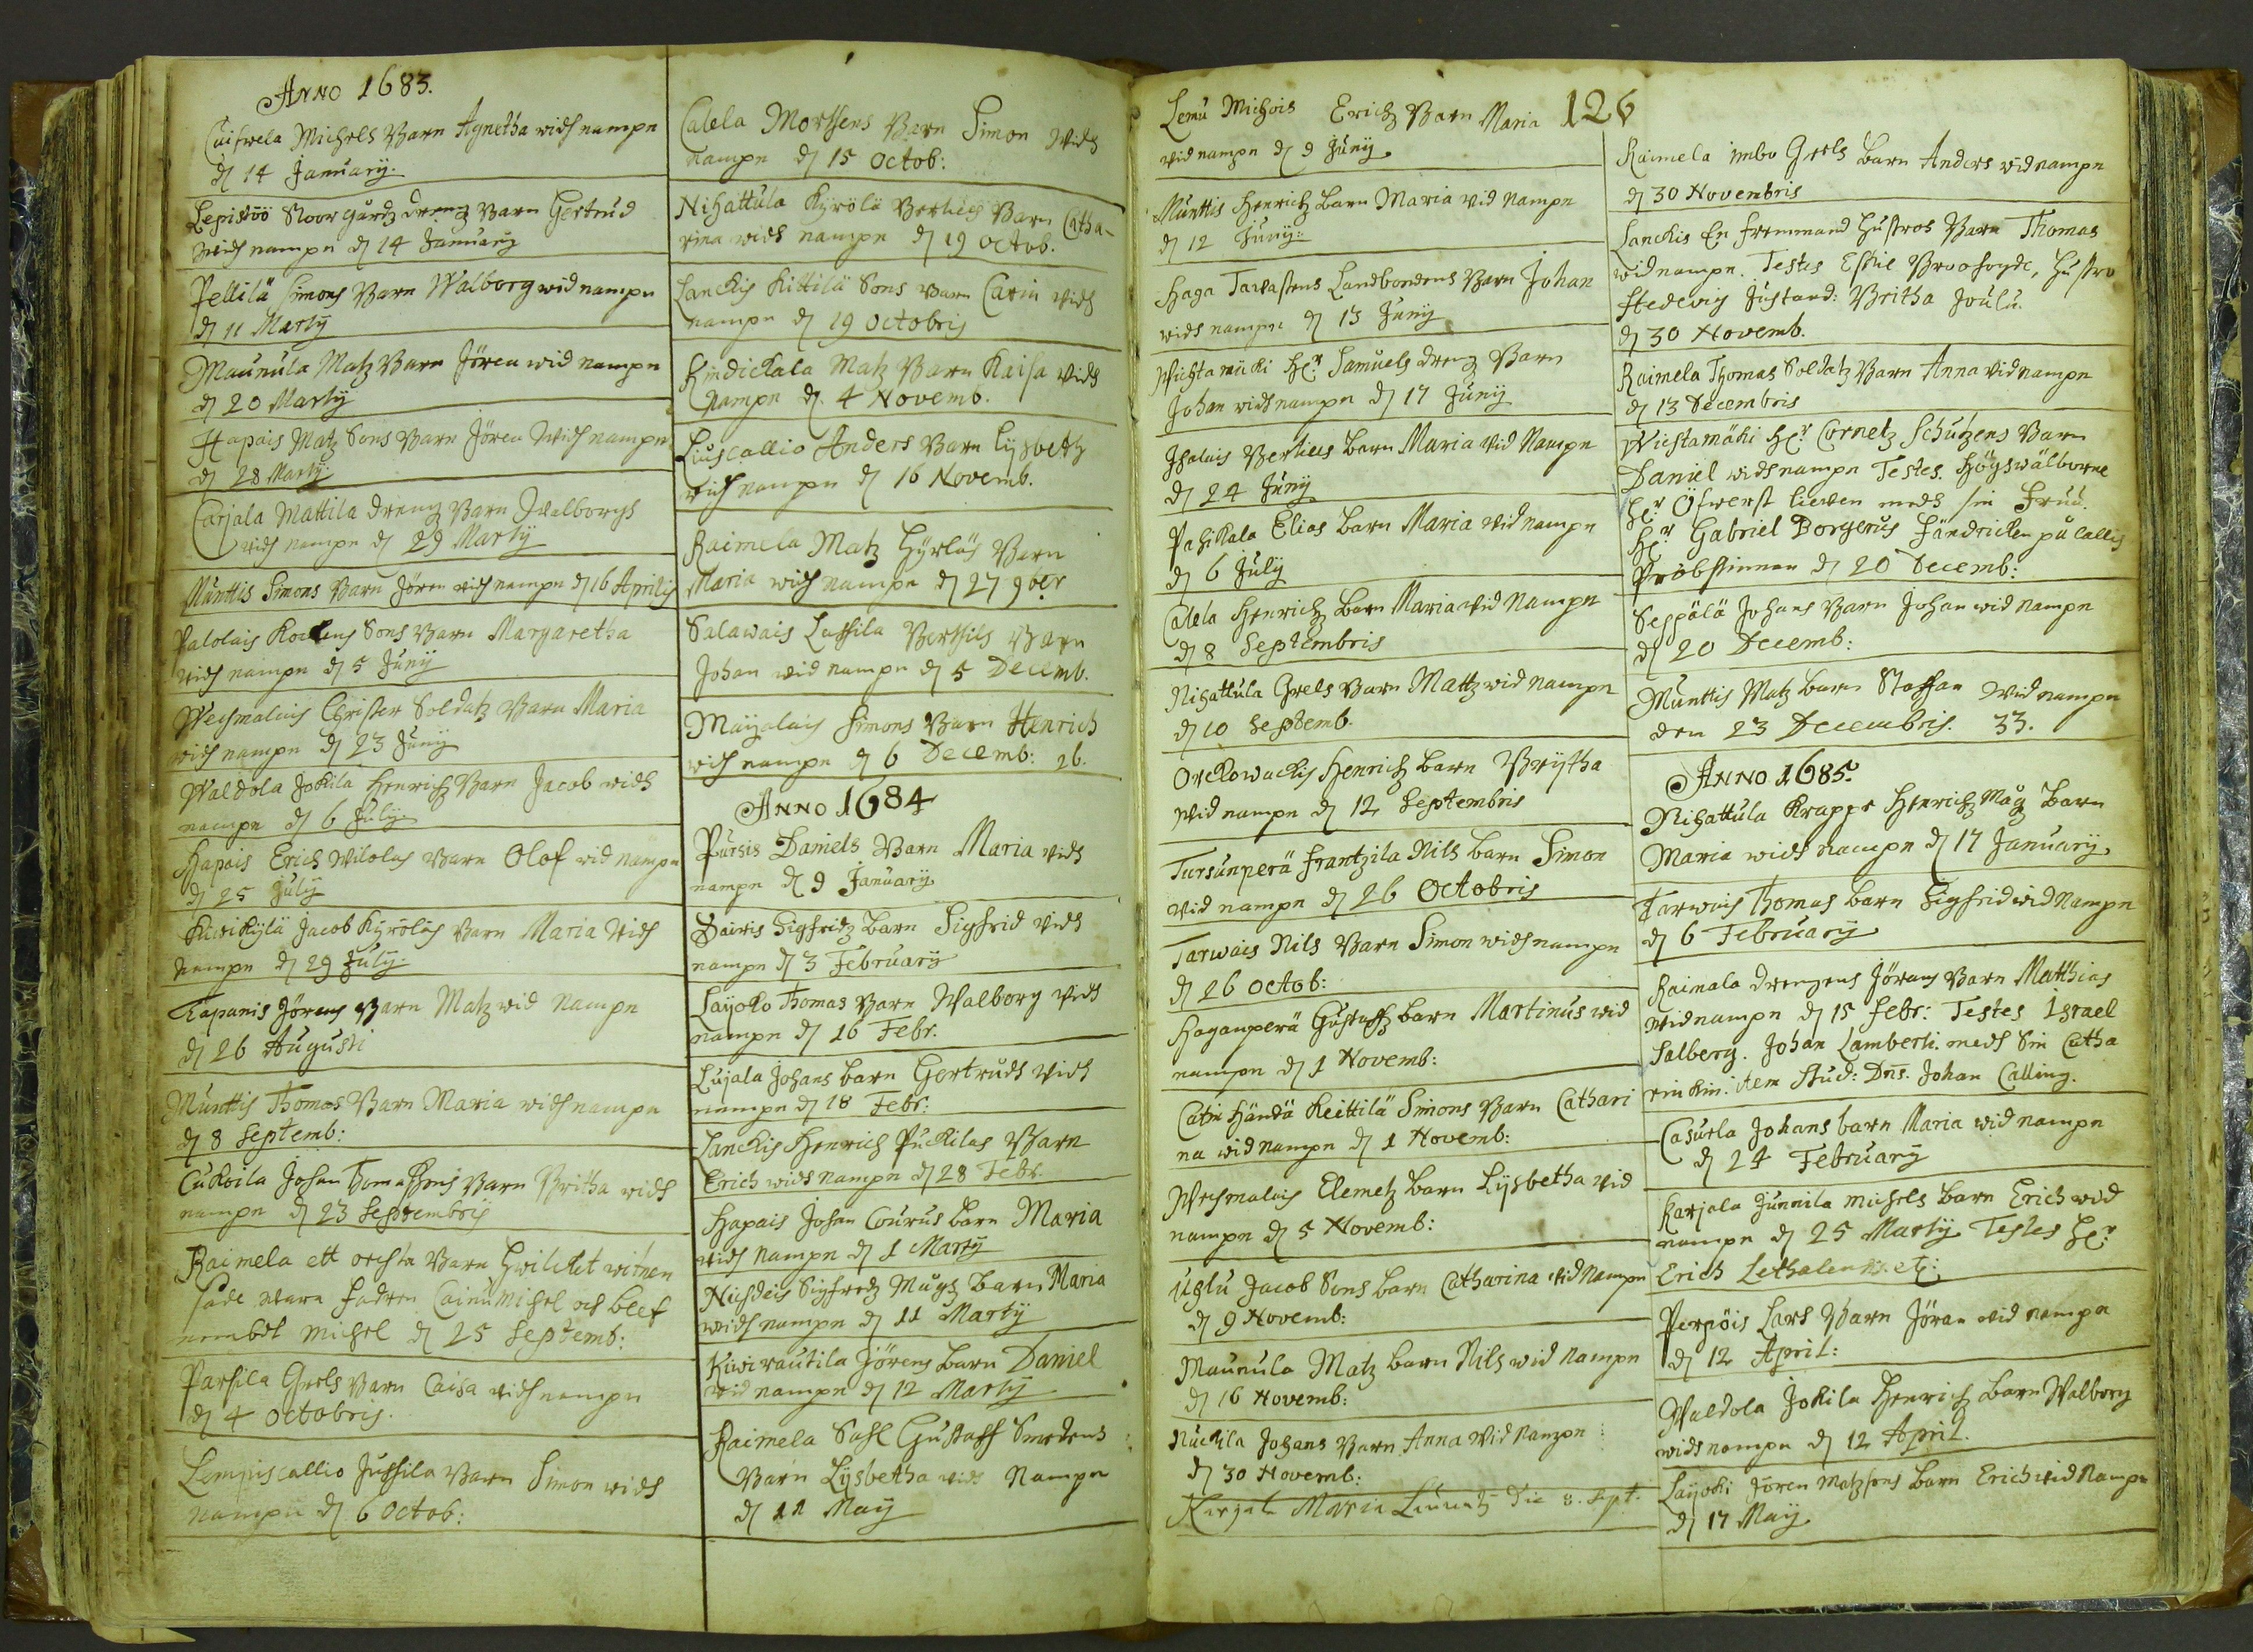 Anno 1683.
Cuifwela Michels Barn Agnetha widh nampn
d 14 January.
Lepistöö Stoorgårdz Drengz Barn Gertrud
widh nampn d 14 January
Pellilä Simons Barn Walborg wid nampn
d 11 Marty
Maunula Matz Barn Jören wid nampn
d 20 Marty
Hapais Matz Sons Barn Jören widh nampn
d 28 Marty
Carjala Mattila Drengz Barn Walborgh
widh nampn d 29 Marty
Munttis Simons Barn Jören widh nampn d 16 Aprilis
Palolais Sons Barn Margaretha
widh nampn d 5 Juny
Wehmalais Christer Soldatz Barn Maria
widh nampn d 23 Juny
Waldola Jokila Henrichz Barn Jacob widh
nampn d 6 July.
Hapais Erich Barn Olof wid nampn
d 25 July
Kiwikylä Jacob Kyröläs Barn Maria widh
nampn d 29 July.
Tapanis Jörens Barn Matz wid nampn
d 26 Augusti
Munttis Thomas Barn Maria widh nampn
d 8 Septemb:
Cukoila Johan Thomassons Barn Britha widh
nampn d 23 Septembris
Raimela ett oächta Barn hwilcket witnen
sade wara fadren Cainu Michel och blef
nembdt Michel d 25 Septemb:
Parsila Grels Barn Caisa widh nampn
d 4 Octobris.
Lempiscallio Jussila Barn Simon widh
nampn d 6 Octob:
Calela Morthens Barn Simon widh
nampn d 15 Octob:
Nihattula Kyrölä Bertils Barn Catha-
rina widh nampn d 19 Octob.
Lanckis Kittilä Sons Barn Carin widh
nampn d 19 Octobris
Kindickala Matz Barn Kaisa widh
nampn d. 4 Novemb.
Liuscallio Anders Barn Lysbetz
widh nampn d 16 Novemb.
Raimela Matz Hyrläs Barn
Maria widh nampn d 27 9ber
Salawais Lassila Berthils Barn
Johan wid nampn d 5 Decemb.
Mayalais Simons Barn Henrich
widh nampn d 6 Decemb: 26.
Anno 1684
Pursis Daniels Barn Maria vidh
nampn d 9 January
Sairis Sigfridz Barn Sigfrid vidh
nampn d 3 February
Layoko Thomas Barn Walborg vidh
nampn d 16 Febr.
Lujala Johans barn Gertrudh vidh
nampn d 18 Febr:
Lanckis Henrich Puckilas Barn
Erich widh nampn d 28 Febr.
Hapais Johan Courus barn Maria
vidh nampn d 1 Marty
Niuhdeis Sigfredz Mågz Barn Maria
widh nampn d 11 Marty
Kiwirautila Jörens barn Daniel
wid nampn d 12 Marty
Raimela Sahl Gustaff Smedens
Barn Lysbetha vidh Nampn
d 11 May
Lemu Michois Erichz Barn Maria 126
vid nampn d 9 Juny
Munttis Henrichz barn Maria vid nampn
d 12 Juny:
Haga Tawastens Landbondens Barn Johan
widh nampn d 13 Juny
Wichtamäki Hr Samuels Drengz Barn
Johan widh nampn d 17 Juny
Ihalais Bertils barn Maria vid Nampn
d 24 Juny
Pahikala Elias barn Maria vid nampn
d 6 July
Calela Henrichz barn Maria vid nampn
d 8 Septembris
Nihattula Grels Barn Mattz wid nampn
d 10 Septemb.
Orckowackis Henrichz barn Brytha
wid nampn d 12 Septembris
Tursunperä Frantzila Nils barn Simon
vid nampn d 26 Octobris
Tarwais Nils Barn Simon widh nampn
d 26 Octob:
Haganperä Gustaffz barn Martinus wid
nampn d 1 Novemb:
Catin Händä Keittilä Simons Barn Cathari
na wid nampn d 1 Novemb:
Wehmalais Clemetz barn Lysbetha vid
nampn d 5 Novemb:
Uslu Jacob Sons barn Catharina vid Nampn
d 9 Novemb:
Maunula Matz barn Nils wid nampn
d 16 Novemb:
Nuckila Johans Barn Anna wid nampn
d 30 Novemb:
Karjal Maria die 8. Sept.
Raimela Grels barn Anders wid nampn
d 30 Novembris
Lanckis En fremmand hustros Barn Thomas
wid nampn. Testes Eskil Broofogde, hustro
Hedewig Britha Joulu.
d 30 Novemb.
Raimela Thomas Soldatz Barn Anna vid nampn
d 13 Decembris
Wichtamäki Hr Cornetz Schutzens Barn
Daniel widh nampn Testes. Högwälborne
Hr Öfwerst Liewen medh sin Fruu.
Hr Gabriel Borgerus Fändricken på Callis
Probstinnan d 20 Decemb:
Seppälä Johans Barn Johan wid nampn
d 20 Decemb:
Munttis Matz barn Staffan wid nampn
den 23 Decembris. 33.
Anno 1685.
Nihattula Krappe Henrichz Mågz barn
Maria widh nampn d 17 January
Tarwais Thomas barn Sigfrid wid Nampn
d 6 February
Raimala Drengens Jörans Barn Matthias
wid nampn d 15 Febr: Testes Israel
Salberg. Johan Lamberti. medh Sin Catha
rin item Stud: Dns. Johan Calling.
Casurla Johans barn Maria wid nampn
d 24 February
Karjala Junnila Michels barn Erich wid
nampn d 25 Marty Testes Hr
Erich Lethalenus. etc:
Perpöis Lars Barn Jöran wid nampn
d 12 April:
Waldola Jokila Henrichz barn Walborg
widh nampn d 12 April.
Layoki Jören Matzsons barn Erich wid Nampn
d 17 May